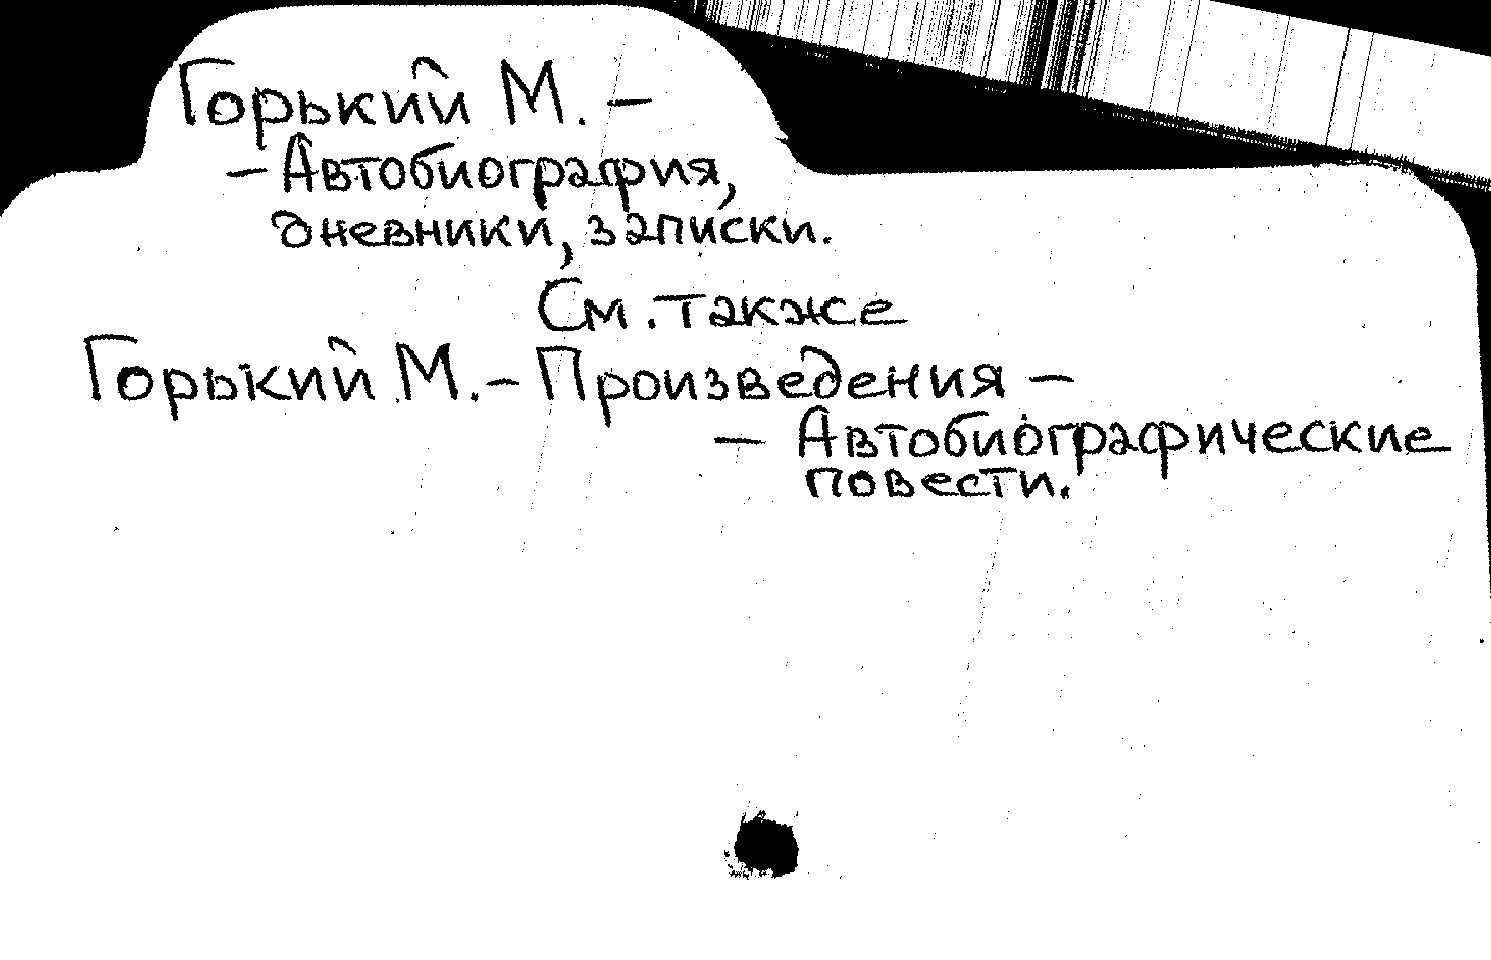 Горький М. –
– Автобиография,
дневники, записки.
См. также
Горький М. – Произведения –
– Автобиографические
повести.